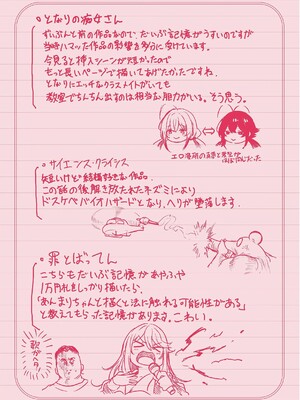 。となりの痴女さん
ずいぶんと前の作品なので、だいぶ記憶がうすいのですが
当時ハマッた作品の影響を多分に受けています。
今見ると挿入シーンが短かったので
もっと長いページで描いてあげたかったですね。
となりにエッチなクラスメイトがいても
教室でちんちん出すのは相当な胆力がいる。そう思う。
エロ漫画の
ほぼ
だった
。サイエンス・クライシス
短いけど結構好きな作品。
この話の後解き放たれたネズミにより
ドスケベバイオハザードとなり、ヘリが墜落します。
。罪とばってん
こちらもだいぶ記憶があやふや
1万円札をしっかり描いたら、
「あんまりちゃんと描くと法に触れる可能性がある」
と教えてもらった記憶があります。こわい。
歌がヘタ